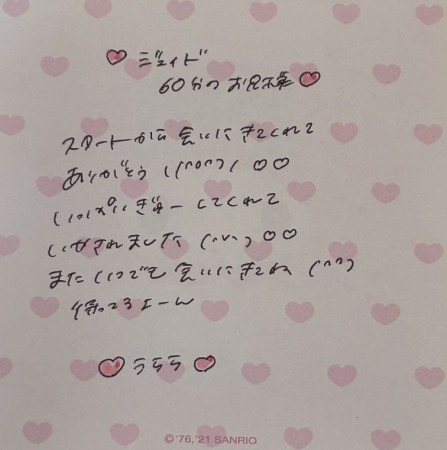 ♡ ジェイド
60分の お兄様 ♡
スタートから 会いにきてくれて
ありがとう (^o^) ♡♡
いっぱいぎゅーしてくれて
いやされました (^^) ♡♡
またいつでも 会いにきてね (^^)
待ってるよーん
♡ うらら ♡
© '76, '21 SANRIO